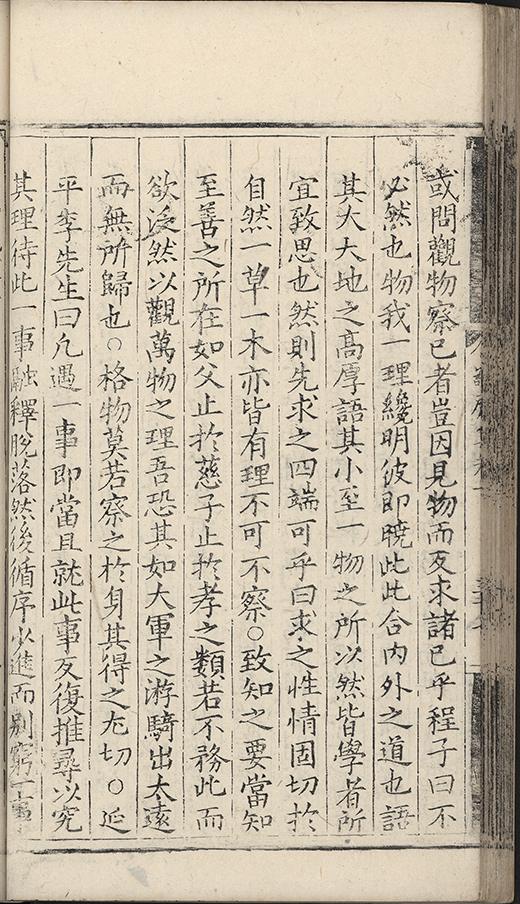 或問觀物察已者豈因見物而反求諸已乎程子曰不
必然也物我一理纔明彼即曉此此合内外之道也語
其大大地之高厚語其小至一物之所以然皆學者所
宜致思也然則先求之四端可乎曰求之性情固切於
自然一草一木亦皆有理不可不察○致知之要當知
至善之所在如父止於慈子止於孝之類若不務此而
欲泛然以觀萬物之理吾恐其如大軍之游騎出太遠
而無所歸也○格物莫若察之於身其得之尤切○延
平李先生曰凡遇一事即當且就此事反復推尋以究
其理待此一事融釋脫落然後循序少進而別窮一事